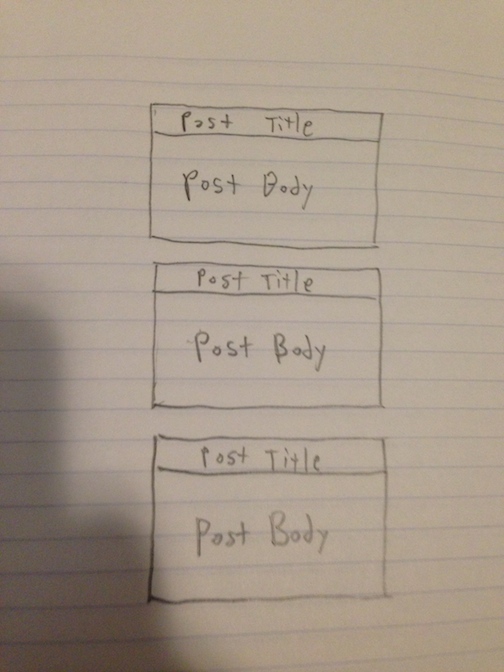 Post Title
Post Body
Post Title
Post Body
Post Title
Post Body